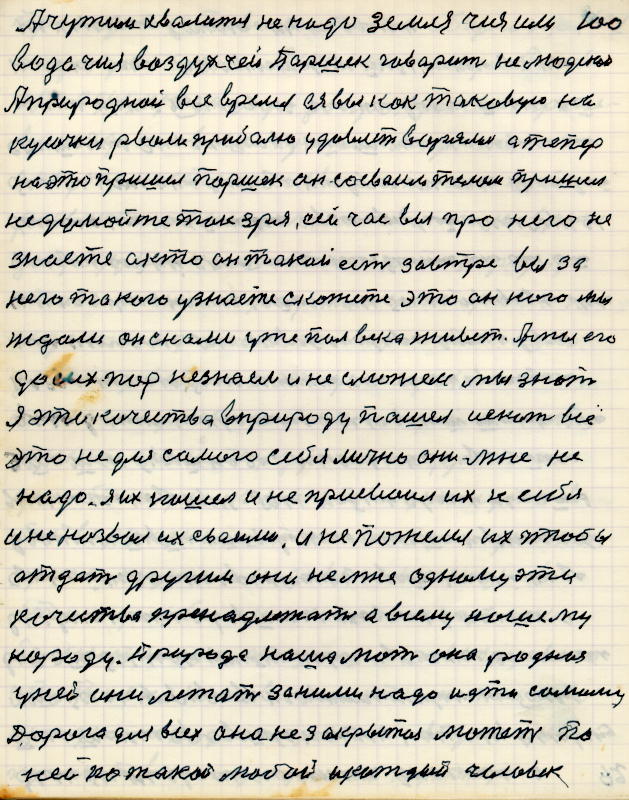 А чужим хвалится не надо земля чия или 100
вода чия воздух чей Паршек говарит не людской
А природной все время ея вы как таковую на
кусочки рвали прибалю удовлетваряли а тепер
на это пришел Паршек он со сваим телом пришел
не думойте так зря, сей час вы про него не
знаете а кто он такой ест завтре вы за
него такого узнаете скожете это он кого мы
ждали он снами уже пол века живет. А мы его
до сих пор незнаем и не сможем мы знат
Я эти кочества вприроду пашел искат всё
это не для самого себя лично они мне не
надо. Я их нашел и не присваил их к себя
и не назвал их сваими. И не пожелел их чтобы
атдат другим они не мне одному эти
кочества пренадлежат а всему нашему
народу. Природа наша мат она родная
у ней они лежат заними надо идти самому
Дорога для всех она не закрытая можеть по
ней по такой любой икождый человек